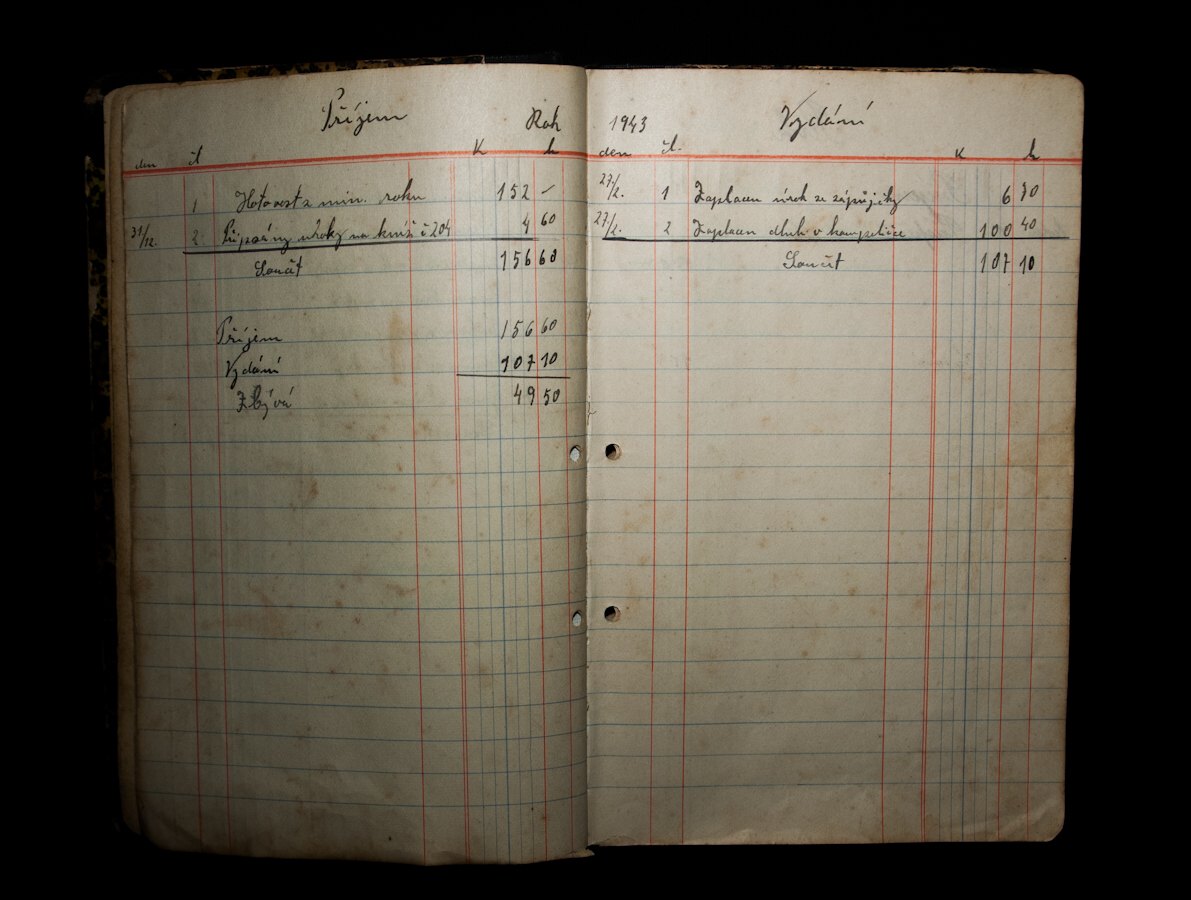 Příjem Rok
den čí K h
1 Hotovost z min. roku 152 –
31/12. 2. Připsány úroky na kníž. č 204 4 60
Součet 156 60
Příjem 156 60
Vydání 107 10
Zbývá 49 50
1943 Vydání
den čí. K h
27/2. 1 Zaplacen úrok ze zápůjčky 6 70
27/2. 2 Zaplacen dluh v kampeličce 100 40
Součet 107 10